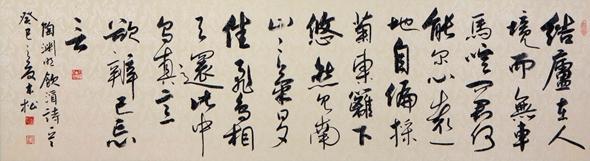 結廬在人
境而無車
馬喧問君何
能爾心遠
地自偏採
菊東籬下
悠然見南
山山氣日夕
佳飛鳥相
與還此中
有真意
欲辨已忘
言
陶淵明飲酒詩一首
癸巳之夏木松